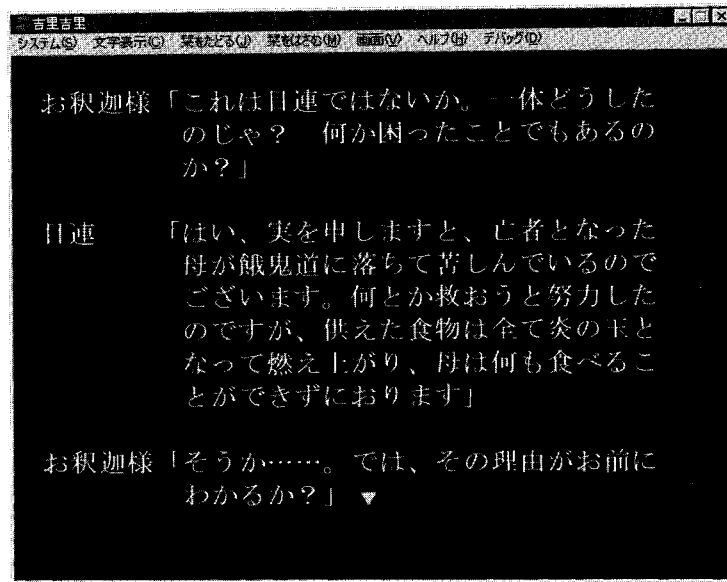 吉里吉里
システム(S) 文字表示(C) 栞をたどる(J) 栞をはさむ(M) 画面(V) ヘルプ(H) デバッグ(D)
お釈迦様「これは目連ではないか。一体どうした
のじゃ？　何か困ったことでもあるの
か？」
目連　　「はい、実を申しますと、亡者となった
母が餓鬼道に落ちて苦しんでいるので
ございます。何とか救おうと努力した
のですが、供えた食物は全て炎の玉と
なって燃え上がり、母は何も食べるこ
とができずにおります」
お釈迦様「そうか……。では、その理由がお前に
わかるか？」▼